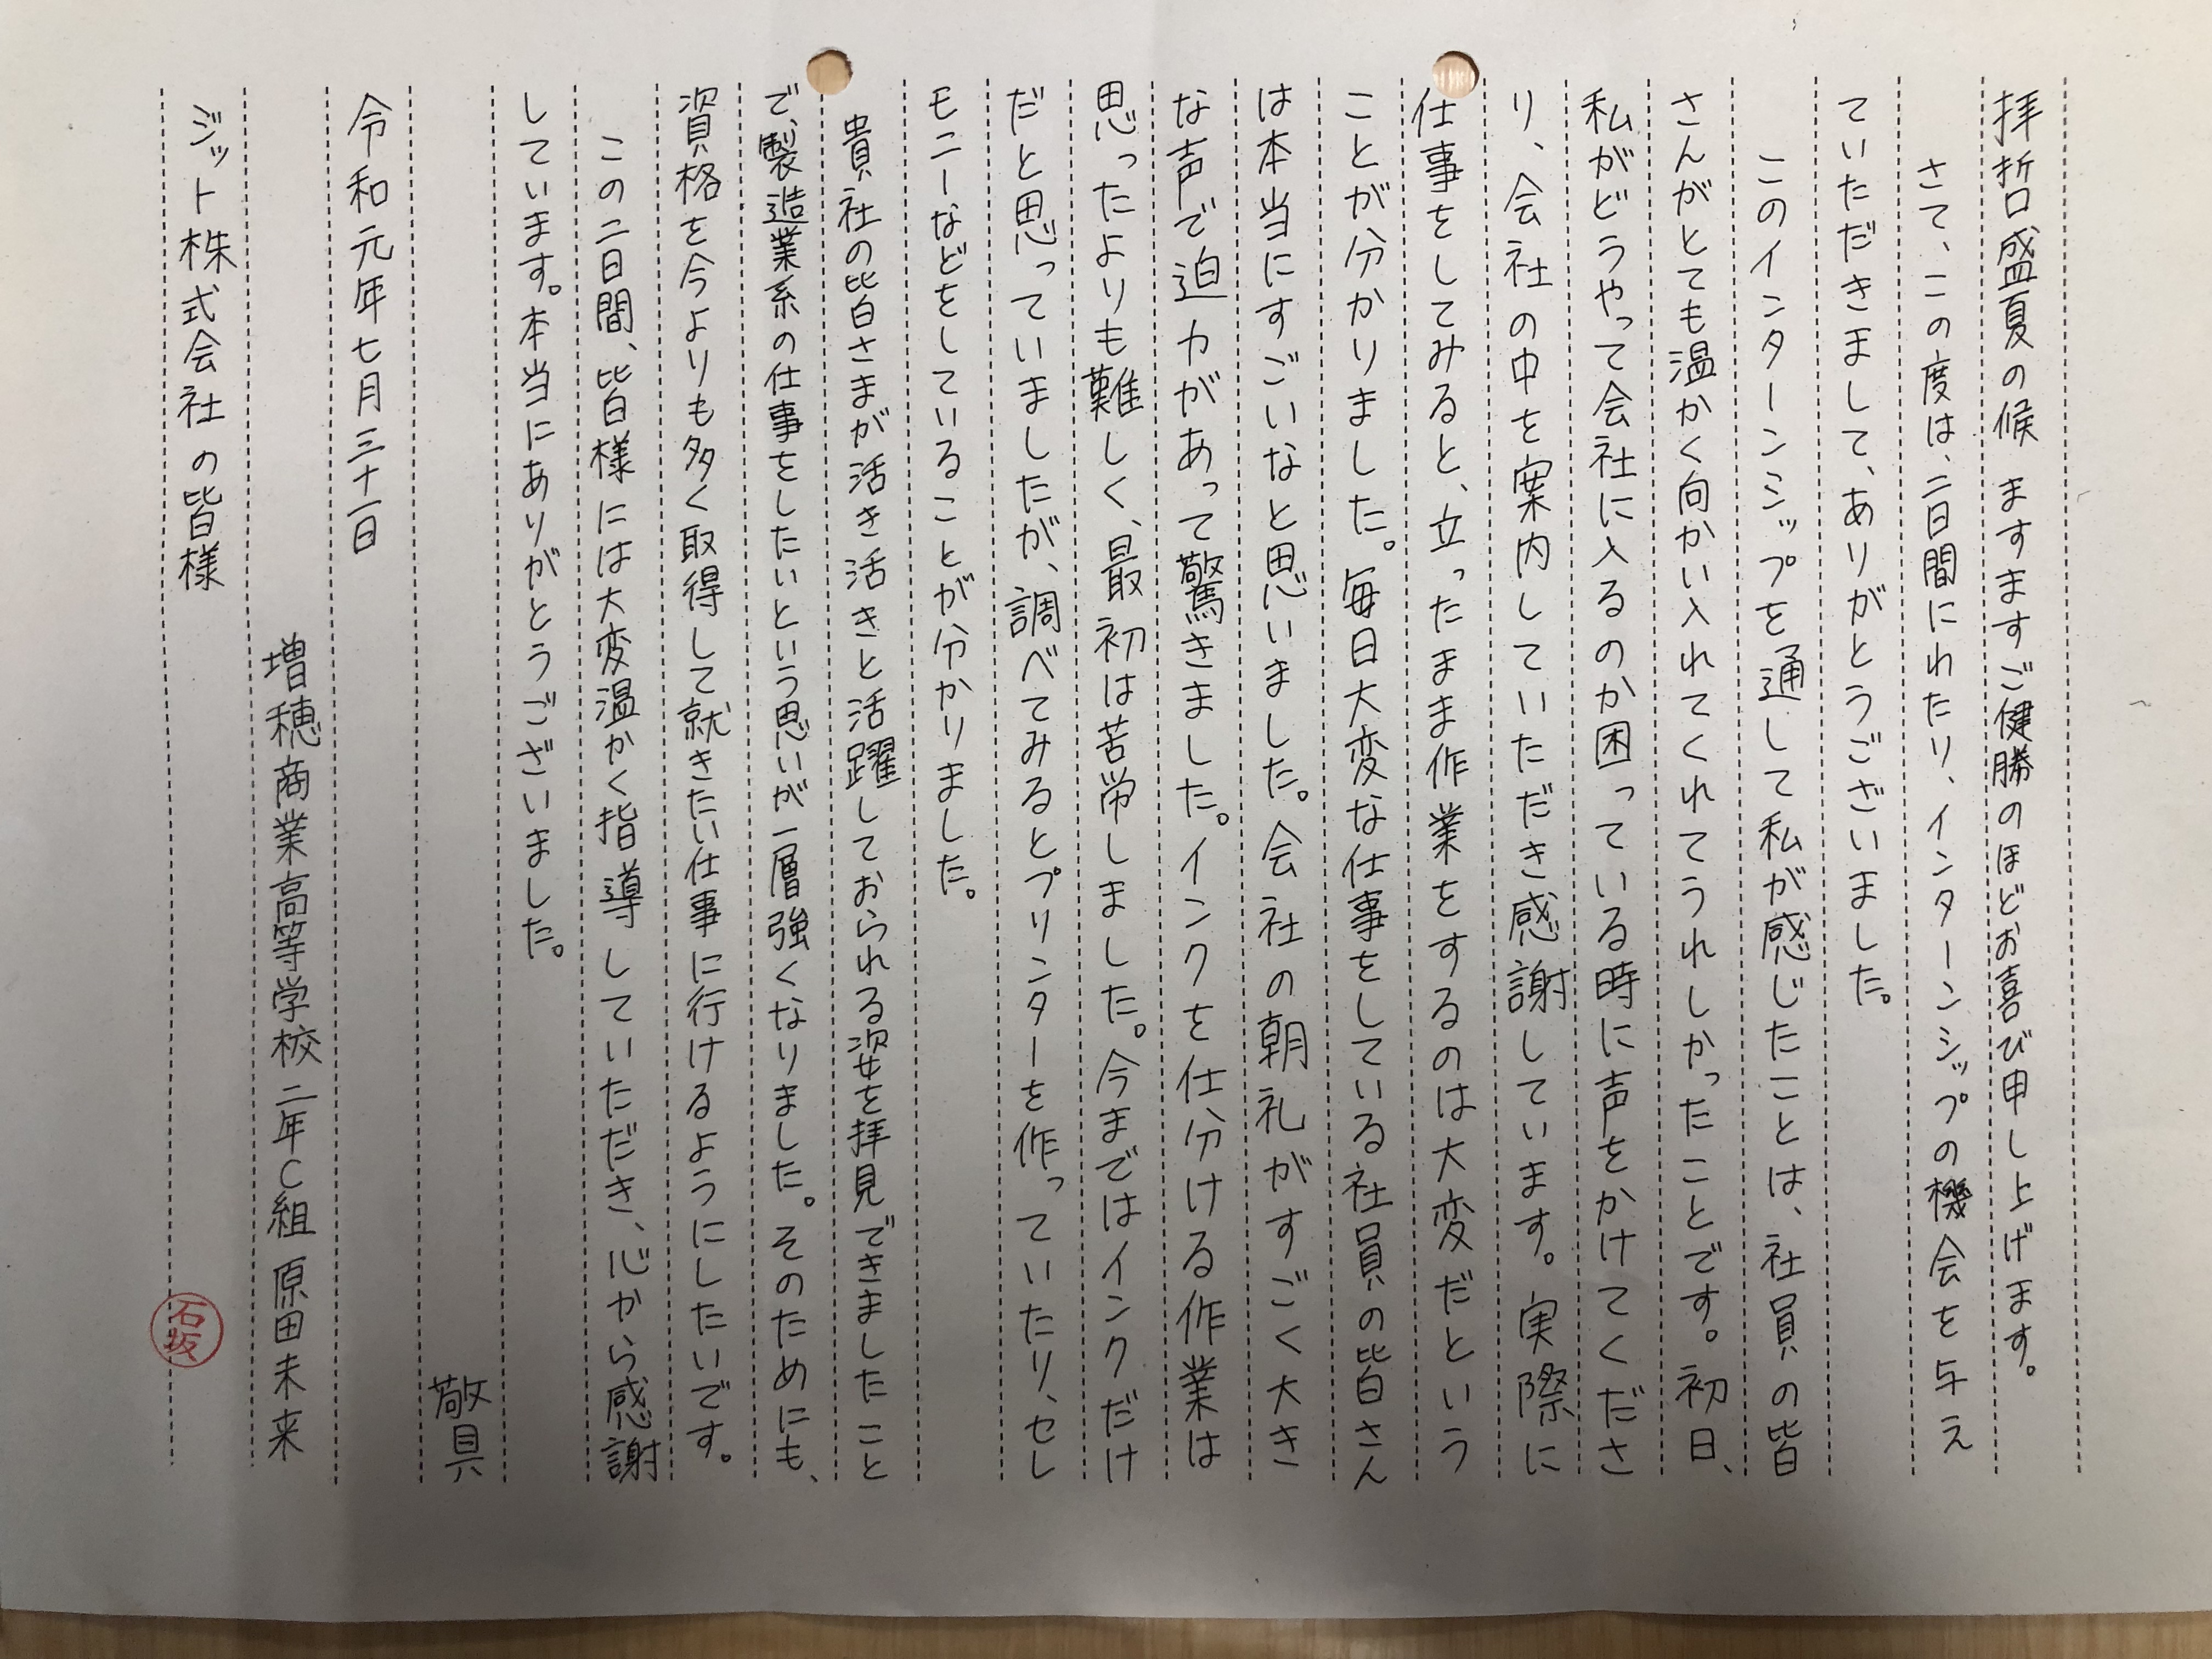 拝哲盛夏の候 ますますご健勝のほどお喜び申し上げます。
さて、この度は、二日間にわたり、インターンシップの機会を与え
ていただきまして、ありがとうございました。
このインターンシップを通して私が感じたことは、社員の皆
さんがとても温かく向かい入れてくれてうれしかったことです。初日、
私がどうやって会社に入るのか困っている時に声をかけてくださ
り、会社の中を案内していただき感謝しています。実際に
仕事をしてみると、立ったまま作業をするのは大変だという
ことが分かりました。毎日大変な仕事をしている社員の皆さん
は本当にすごいなと思いました。会社の朝礼がすごく大き
な声で迫力があって驚きました。インクを仕分ける作業は
思ったよりも難しく、最初は苦労しました。今まではインクだけ
だと思っていましたが、調べてみるとプリンターを作っていたり、セレ
モニーなどをしていることが分かりました。
貴社の皆さまが活き活きと活躍しておられる姿を拝見できましたこと
で、製造業系の仕事をしたいという思いが一層強くなりました。そのためにも、
資格を今よりも多く取得して就きたい仕事に行けるようにしたいです。
この二日間、皆様には大変温かく指導していただき、心から感謝
しています。本当にありがとうございました。
敬具
令和元年七月三十一日
増穂商業高等学校二年C組 原田未来
ジット株式会社の皆様
石坂